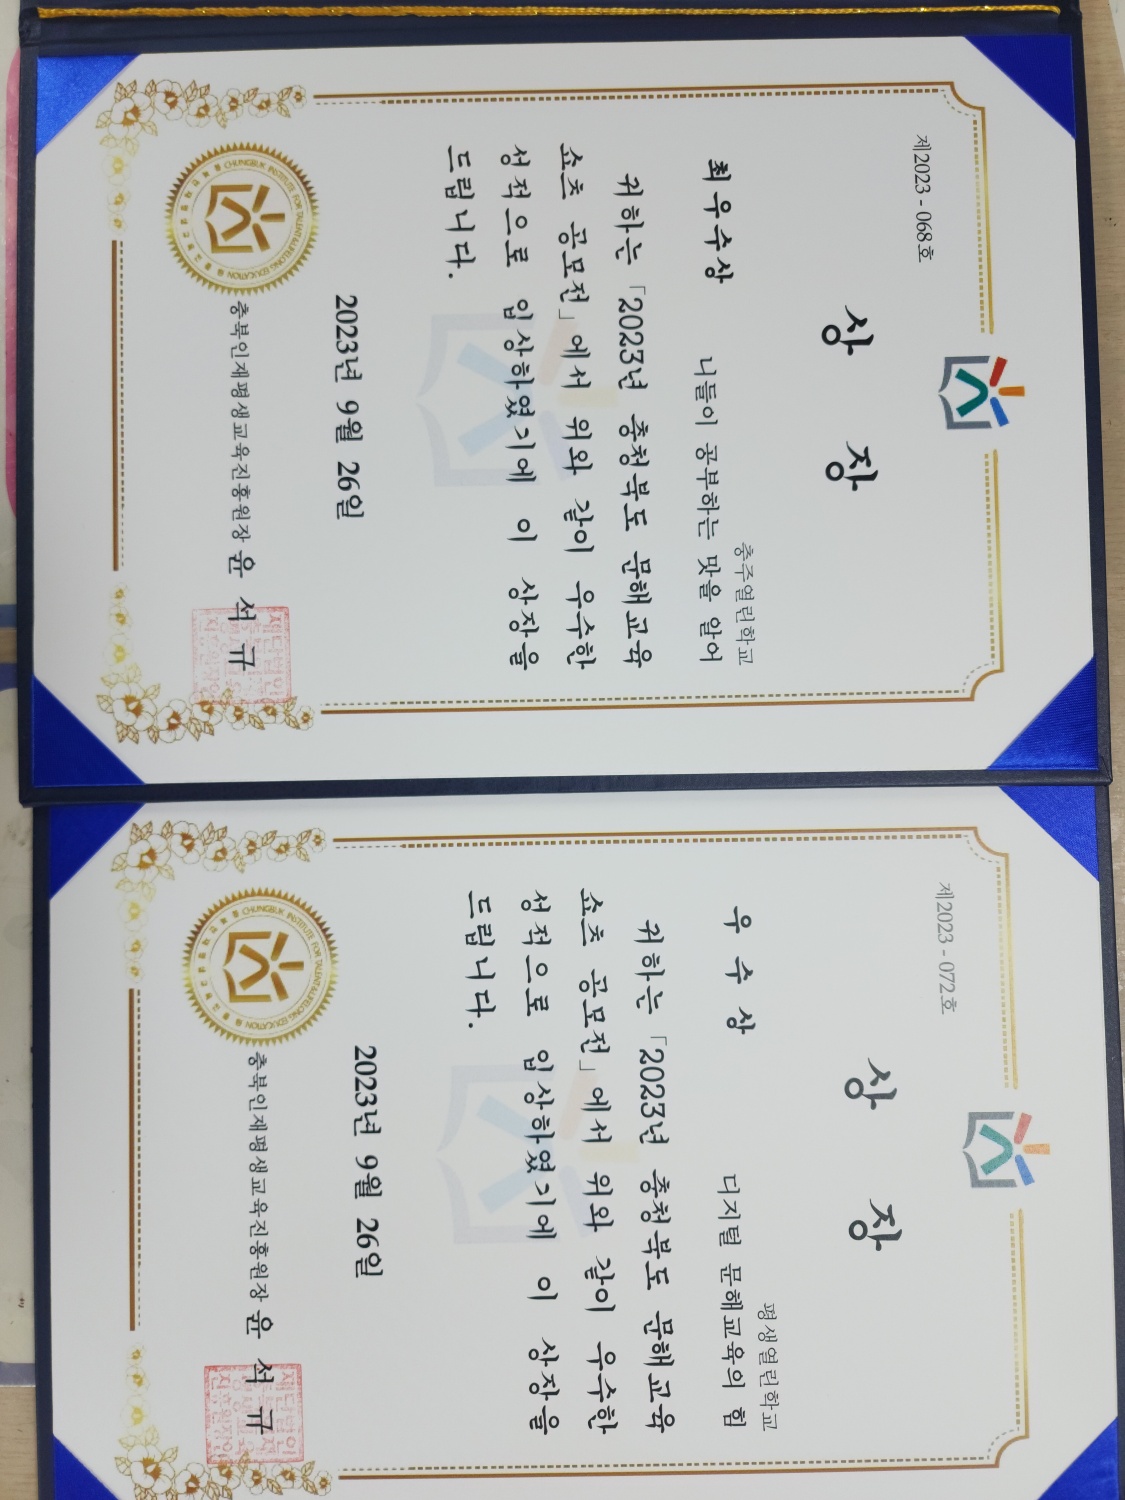 제2023 - 068호
상 장
충주열린학교
최우수상 니들이 공부하는 맛을 알어
귀하는 「2023년 충청북도 문해교육
쇼츠 공모전」에서 위와 같이 우수한
성적으로 입상하였기에 이 상장을
드립니다.
2023년 9월 26일
CHUNGBUK INSTITUTE FOR TALENT&LIFELONG EDUCATION
충북인재평생교육진흥원장 윤 석 규
제2023 - 072호
상 장
평생열린학교
우 수 상 디지털 문해교육의 힘
귀하는 「2023년 충청북도 문해교육
쇼츠 공모전」에서 위와 같이 우수한
성적으로 입상하였기에 이 상장을
드립니다.
2023년 9월 26일
CHUNGBUK INSTITUTE FOR TALENT&LIFELONG EDUCATION
충북인재평생교육진흥원장 윤 석 규